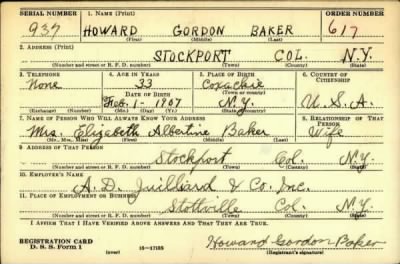 SERIAL NUMBER 1. NAME (Print) ORDER NUMBER
937 HOWARD GORDON BAKER 617
(First) (Middle) (Last)
2. ADDRESS (Print)
STOCKPORT COL. N.Y.
(Number and street or R. F. D. number) (Town) (County) (State)
3. TELEPHONE 4. AGE IN YEARS 5. PLACE OF BIRTH 6. COUNTRY OF CITIZENSHIP
None 33 Coxackie
DATE OF BIRTH (Town or county)
Feb. 1- 1907 N.Y. U.S.A.
(Exchange) (Number) (Mo.) (Day) (Yr.) (State or country)
7. NAME OF PERSON WHO WILL ALWAYS KNOW YOUR ADDRESS 8. RELATIONSHIP OF THAT PERSON
Mrs. Elizabeth Albertine Baker Wife
(Mr., Mrs., Miss) (First) (Middle) (Last)
9. ADDRESS OF THAT PERSON
Stockport Col. N.Y.
(Number and street or R. F. D. number) (Town) (County) (State)
10. EMPLOYER'S NAME
A. D. Juilliard & Co. Inc.
11. PLACE OF EMPLOYMENT OR BUSINESS
Stottville Col. N.Y.
(Number and street or R. F. D. number) (Town) (County) (State)
I AFFIRM THAT I HAVE VERIFIED ABOVE ANSWERS AND THAT THEY ARE TRUE.
REGISTRATION CARD
D. S. S. Form 1 (over) 16-17105 Howard Gordon Baker
(Registrant's signature)